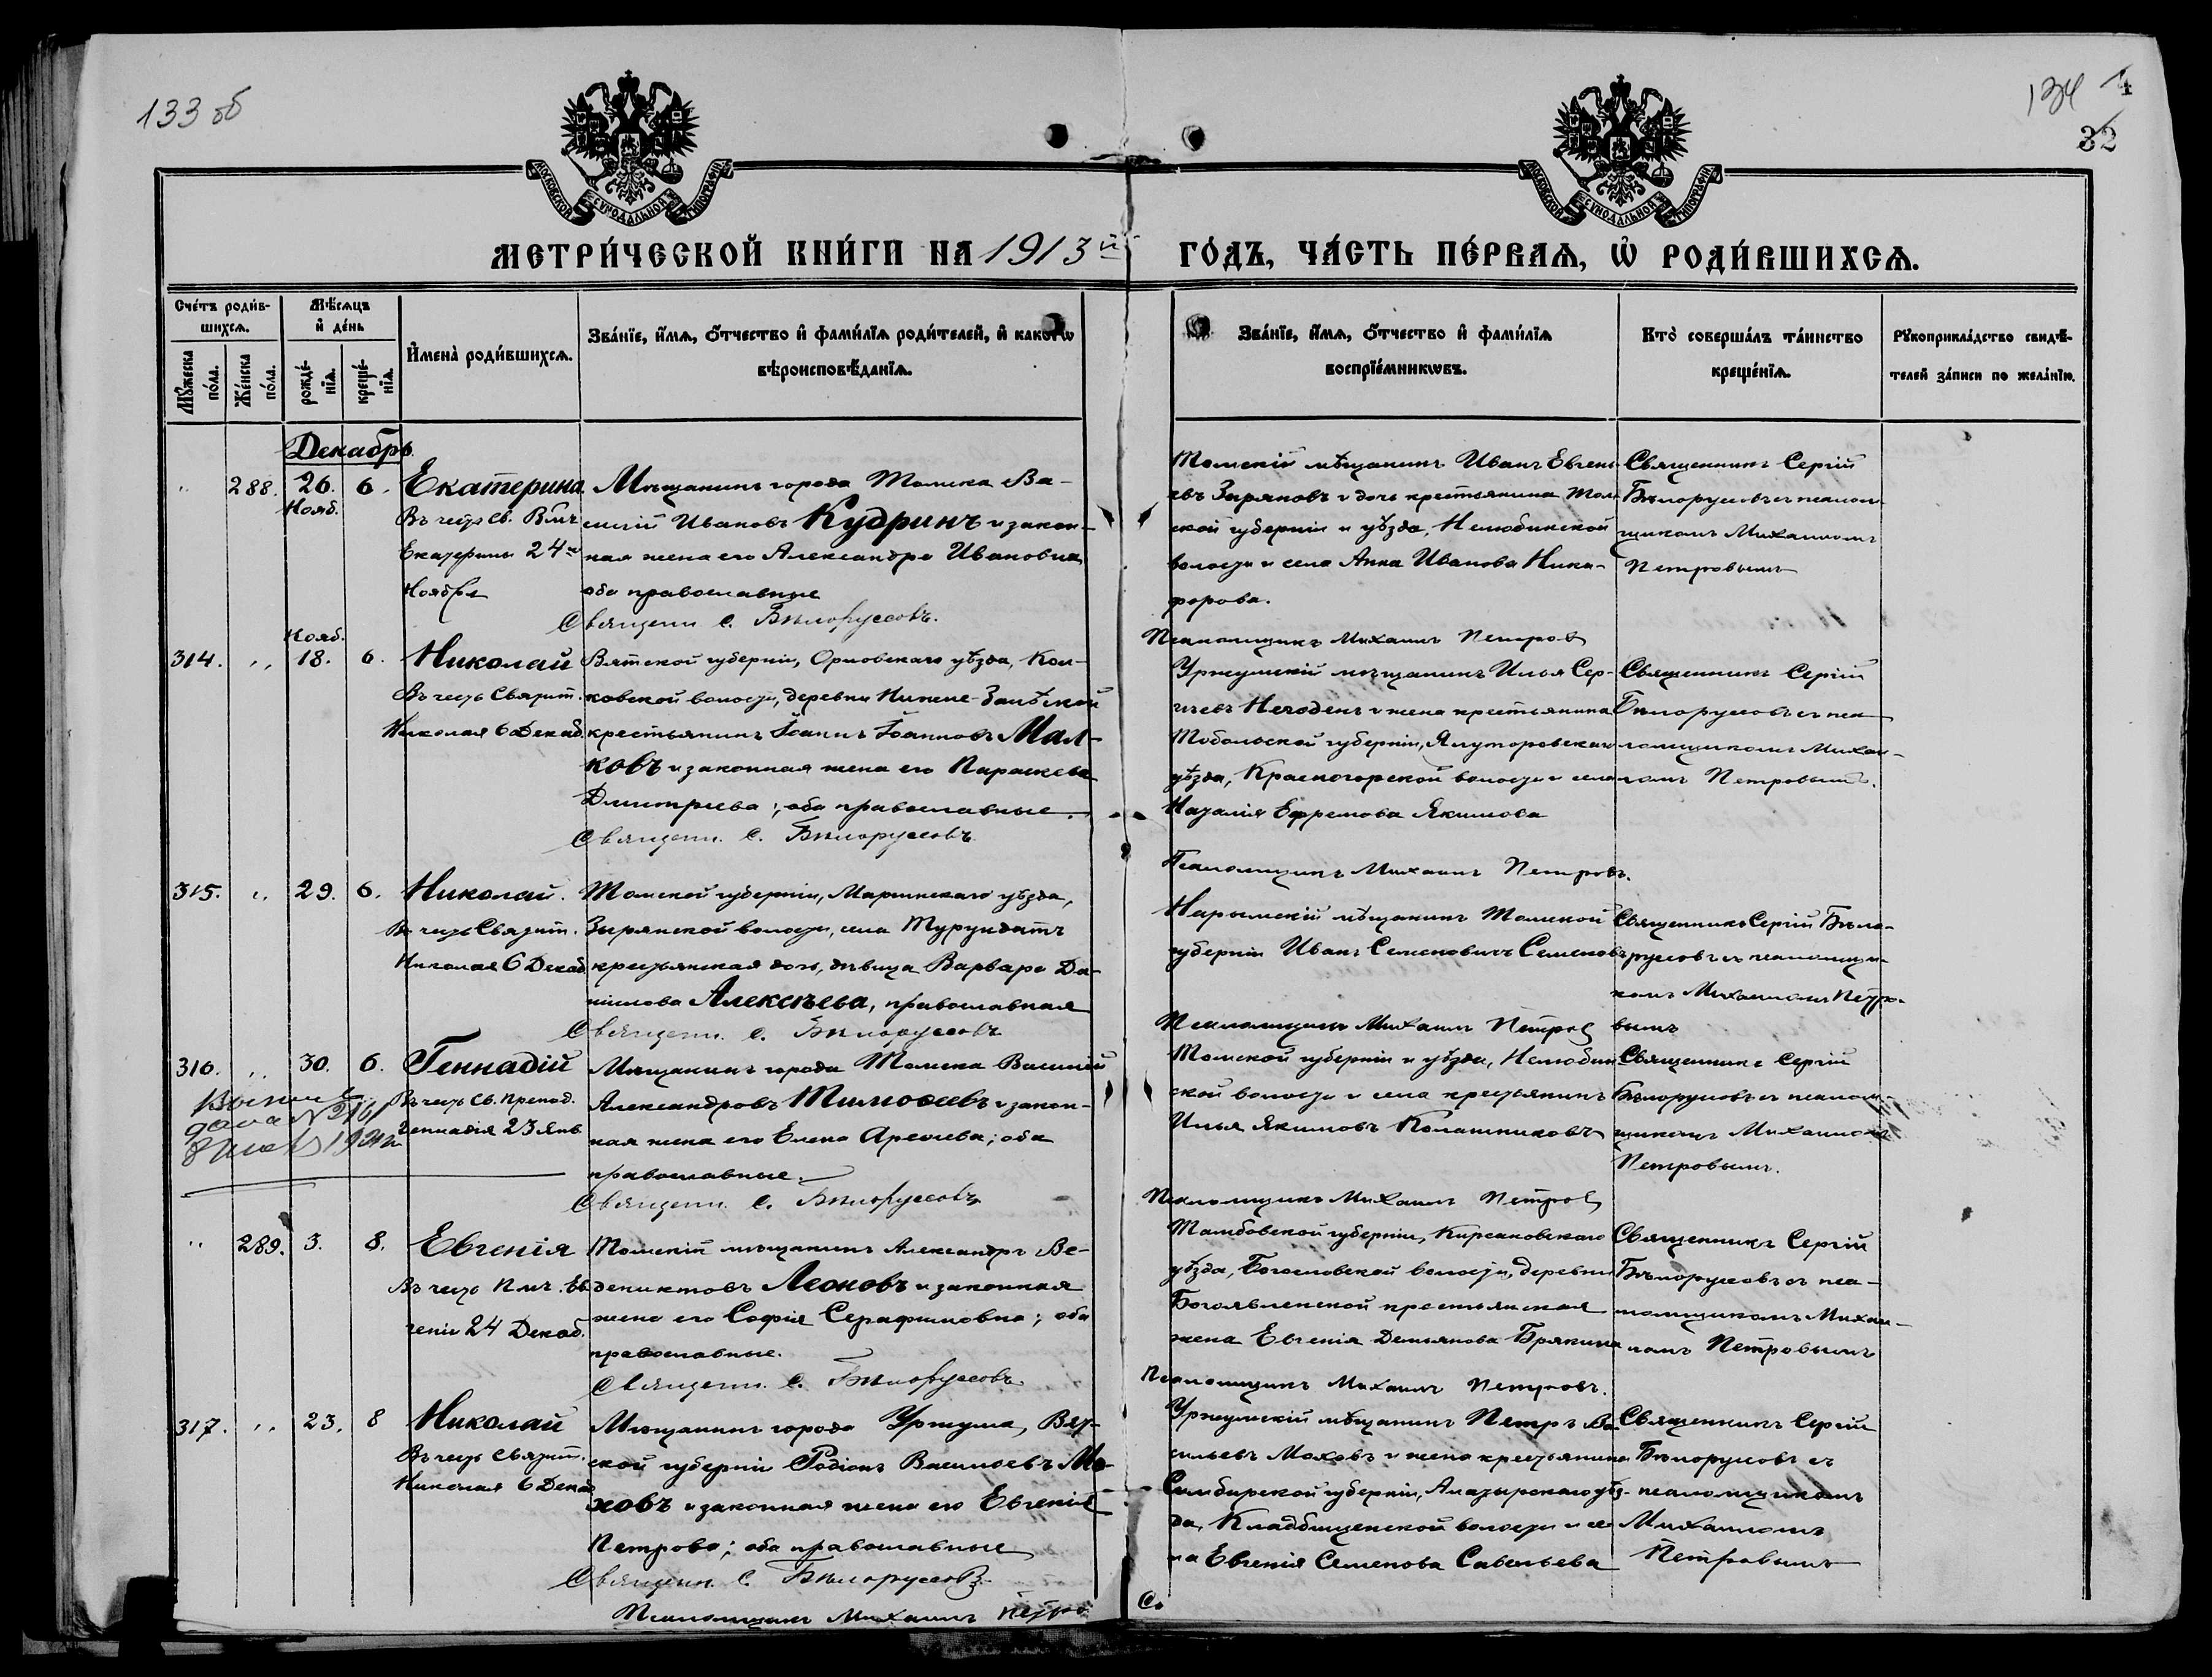 133 об
134
4
32
МОСКОВСКОЙ СѴНОДАЛЬНОЙ ТИПОГРАФІИ
МОСКОВСКОЙ СѴНОДАЛЬНОЙ ТИПОГРАФІИ
МЕТРИ́ЧЕСКОЙ КНИ́ГИ НА 1913й
ГО́ДЪ, ЧА́СТЬ ПЕ́РВАѦ, Ѡ҆ РОДИ́ВШИХСѦ.
Сче́тъ роди́в-
шихсѧ.
Мѣ́сѧцъ
и҆ де́нь
Мꙋ́жеска
по́ла.
Же́нска
по́ла.
рожде́-
нїѧ.
креще́-
нїѧ.
И҆мена̀ роди́вшихсѧ.
Зва́нїе, и҆́мѧ, ѻ҆́тчество и҆ фами́лїѧ роди́телей, и҆ како́гѡ
вѣроисповѣ́данїѧ.
Зва́нїе, и҆́мѧ, ѻ҆́тчество и҆ фами́лїѧ
воспрїе́мникѡвъ.
Кто̀ соверша́лъ та́инство
креще́нїѧ.
Рꙋкоприкла́дство свидѣ́-
телей за́писи по жела́нїю.
Декабрь.
„ 288. 26. 6.
Нояб.
Екатерина
Въ честь Св. Влмч
Екатерины 24го
Ноября
Мѣщанинъ города Томска Ва-
силій Ивановъ Кудринъ и закон-
ная жена его Александра Ивановна,
оба православные
Священн. С. Бѣлоруссовъ.
Томскій мѣщанинъ Иванъ Евгені-
евъ Зыряновъ и дочь крестьянина Том-
ской губерніи и уѣзда, Нелюбинской
волости и села Анна Иванова Ники-
форова.
Псаломщикъ Михаилъ Петровъ
Священникъ Сергій
Бѣлоруссовъ съ псалом-
щикомъ Михаиломъ
Петровымъ
Нояб.
314. „ 18. 6.
Николай
Въ честь Святит.
Николая 6 Декаб.
Вятской губерніи, Орловскаго уѣзда, Кол-
ковской волости, деревни Нижне-
крестьянинъ Іоаннъ Іоанновъ Мал-
ковъ и законная жена его Параскева
Дмитріева; оба православные.
Священн. С. Бѣлоруссовъ.
Уржумскій мѣщанинъ Илья Сер-
гѣевъ и жена крестьянина
Тобольской губерніи, Ялуторовскаго
уѣзда, Красногорской волости и села
Наталія Ефремова Якимова
Псаломщикъ Михаилъ Петровъ.
Священникъ Сергій
Бѣлоруссовъ съ пса-
ломщикомъ Михаи-
ломъ Петровымъ.
315. „ 29. 6.
Николай.
Въ честь Святит.
Николая 6 Декаб
Томской губерніи, Маріинскаго уѣзда,
Зырянской волости, села Турундатъ
крестьянская дочь, дѣвица Варвара Да-
ніилова Алексѣева, православная
Священн. С. Бѣлоруссовъ
Нарымскій мѣщанинъ Томской
губерніи Иванъ Семеновичъ Семеновъ
Псаломщикъ Михаилъ Петровъ
Священникъ Сергій Бѣло-
руссовъ съ псаломщи-
комъ Михаиломъ Петро-
вымъ
316. „ 30. 6.
Геннадій
Въ честь Св. Препод.
Геннадія 23 Янв
Мѣщанинъ города Томска Василій
Александровъ Тимоѳеевъ и закон-
ная жена его Елена; оба
православные.
Священн. С. Бѣлоруссовъ
Томской губерніи и уѣзда, Нелюбин-
ской волости и села крестьянинъ
Илья Якимовъ Колашниковъ
Псаломщикъ Михаилъ Петровъ
Священникъ Сергій
Бѣлоруссовъ съ псалом-
щикомъ Михаиломъ
Петровымъ.
„ 289. 3. 8.
Евгенія
Въ честь Пмч. Ев
геніи 24 Декаб.
Томскій мѣщанинъ Александръ Ве-
дениктовъ Леоновъ и законная
жена его Софія Серафимовна; оба
православные.
Священн. С. Бѣлоруссовъ.
Тамбовской губерніи, Кирсановскаго
уѣзда, Богословской волости, деревни
Богоявленской крестьянская
жена Евгенія Демьянова Брякина
Псаломщикъ Михаилъ Петровъ.
Священникъ Сергій
Бѣлоруссовъ съ пса-
ломщикомъ Михаи-
ломъ Петровымъ
317. „ 23. 8
Николай
Въ честь Святит.
Николая 6 Декаб
Мѣщанинъ города Уржума, Вят-
ской губерніи Родіонъ Васильевъ Мо-
ховъ и законная жена его Евгенія
Петрова; оба православные
Священн. С. Бѣлоруссовъ.
Псаломщикъ Михаилъ Петро
Уржумскій мѣщанинъ Петръ Ва-
сильевъ Моховъ и жена крестьянина
Симбирской губерніи, Алатырскаго уѣз-
да, Кладбищенской волости и се-
ла Евгенія Семенова Савельева
Священникъ Сергій
Бѣлоруссовъ съ
псаломщикомъ
Михаиломъ
Петровымъ
Со